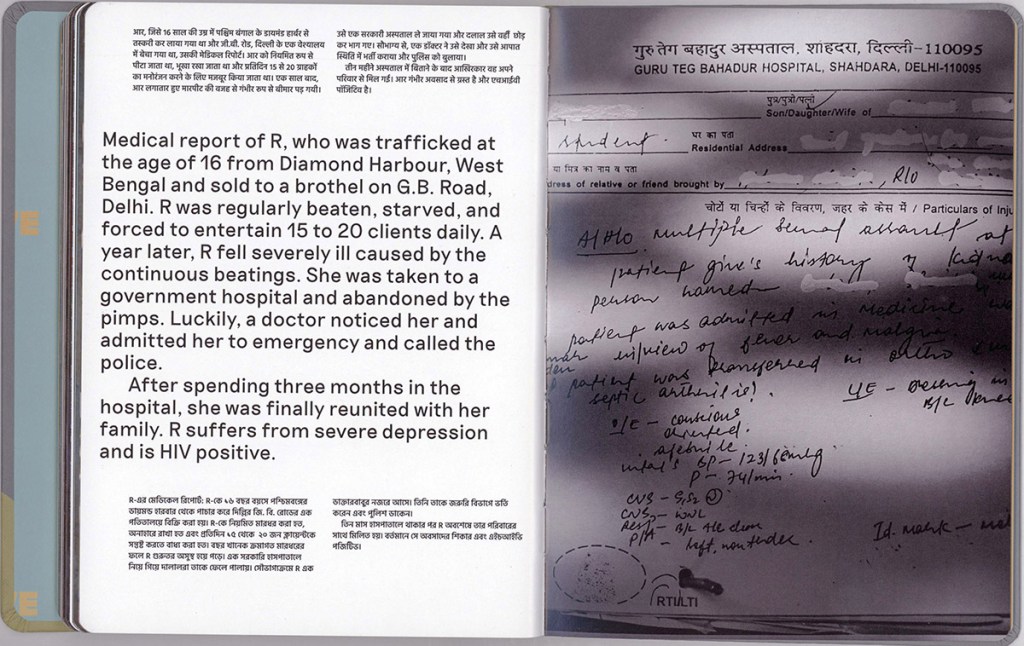 आर, जिसे 16 साल की उम्र में पश्चिम बंगाल के डायमंड हार्बर से
तस्करी कर लाया गया था और जी.बी. रोड, दिल्ली के एक वेश्यालय
में बेचा गया था, उसकी मेडिकल रिपोर्ट। आर को नियमित रूप से
पीटा जाता था, भूखा रखा जाता था और प्रतिदिन 15 से 20 ग्राहकों
का मनोरंजन करने के लिए मजबूर किया जाता था। एक साल बाद,
आर लगातार हुए मारपीट की वजह से गंभीर रूप से बीमार पड़ गयी।
उसे एक सरकारी अस्पताल ले जाया गया और दलाल उसे वहीं छोड़
कर भाग गए। सौभाग्य से, एक डॉक्टर ने उसे देखा और उसे आपात
स्थिति में भर्ती कराया और पुलिस को बुलाया।
तीन महीने अस्पताल में बिताने के बाद आख़िरकार वह अपने
परिवार से मिल गई। आर गंभीर अवसाद से ग्रस्त है और एचआईवी
पॉजिटिव है।
Medical report of R, who was trafficked at
the age of 16 from Diamond Harbour, West
Bengal and sold to a brothel on G.B. Road,
Delhi. R was regularly beaten, starved, and
forced to entertain 15 to 20 clients daily. A
year later, R fell severely ill caused by the
continuous beatings. She was taken to a
government hospital and abandoned by the
pimps. Luckily, a doctor noticed her and
admitted her to emergency and called the
police.
After spending three months in the
hospital, she was finally reunited with her
family. R suffers from severe depression
and is HIV positive.
R-এর মেডিকেল রিপোর্ট: R-কে ১৬ বছর বয়সে পশ্চিমবঙ্গের
ডায়মন্ড হারবার থেকে পাচার করে দিল্লির জি. বি. রোডের এক
পতিতালয়ে বিক্রি করা হয়। R-কে নিয়মিত মারধর করা হত,
অনাহারে রাখা হত এবং প্রতিদিন ১৫ থেকে ২০ জন ক্লায়েন্টকে
সন্তুষ্ট করতে বাধ্য করা হত। বছর খানেক ক্রমাগত মারধরের
ফলে R গুরুতর অসুস্থ হয়ে পড়ে। এক সরকারি হাসপাতালে
নিয়ে গিয়ে দালালরা তাকে ফেলে পালায়। সৌভাগ্যক্রমে R এক
ডাক্তারবাবুর নজরে আসে। তিনি তাকে জরুরি বিভাগে ভর্তি
করেন এবং পুলিশ ডাকেন।
তিন মাস হাসপাতালে থাকার পর R অবশেষে তার পরিবারের
সাথে মিলিত হয়। বর্তমানে সে অবসাদের শিকার এবং এইচআইভি
পজিটিভ।
गुरु तेग बहादुर अस्पताल, शाहदरा, दिल्ली-110095
GURU TEG BAHADUR HOSPITAL, SHAHDARA, DELHI-110095
पुत्र/पुत्री/पत्नी
Son/Daughter/Wife of
student. घर का पता
Residential Address
या मित्र का नाम व पता
dress of relative or friend brought by R/o
चोटों या चिन्हों के विवरण, जहर के केस में / Particulars of Inju
A/H/O multiple sexual assault at
patient give's history of
person named
patient was admitted in medicine
in/view of fever and
patient was transferred in ortho
septic arthritis
O/E - conscious
oriented.
afebrile
BP - 123/68mmHg
P - 74/min
CVS - S1S2
CNS - WNL
P/A - soft, nontender
Id. mark -
RTI/LTI